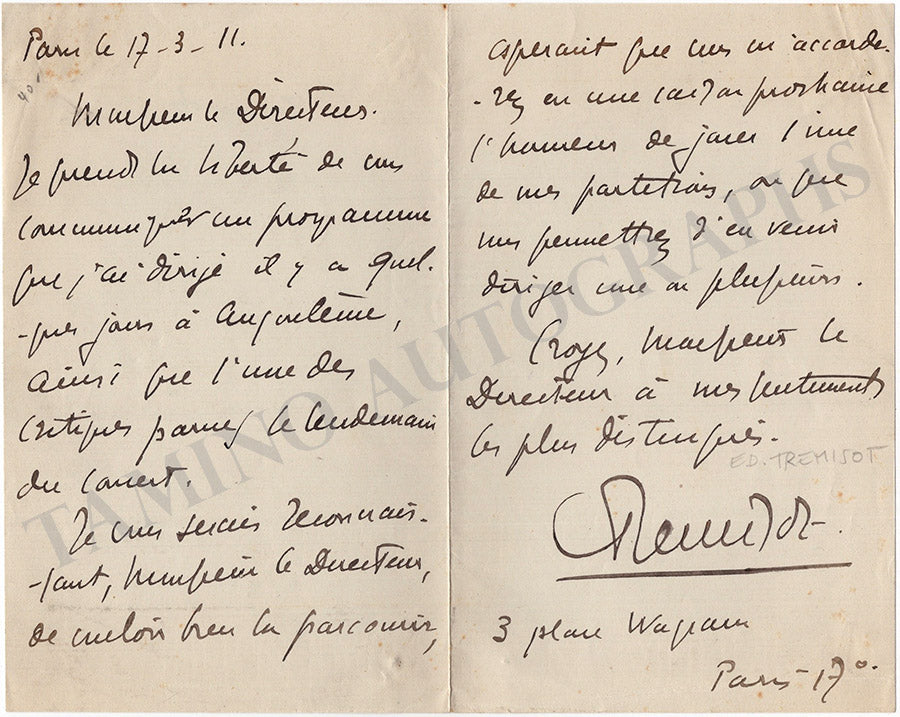 Paris le 17-3-11.
40
Monsieur le Directeur.
Je prends la liberté de vous
communiquer un programme
que j'ai dirigé il y a quel-
-ques jours à Angoulême,
ainsi que l'une des
critiques parues le lendemain
du concert.
Je vous serais reconnais-
-sant, Monsieur le Directeur,
de vouloir bien la parcourir,
espérant que vous m'accorde-
-rez en une saison prochaine
l'honneur de jouer l'une
de mes partitions, ou que
vous permettrez d'en venir
diriger une ou plusieurs.
Croyez, Monsieur le
Directeur à mes sentiments
les plus distingués.
ED. TREMISOT
Tremisot
3 place Wagram
Paris-17º.
TAMINO AUTOGRAPHS